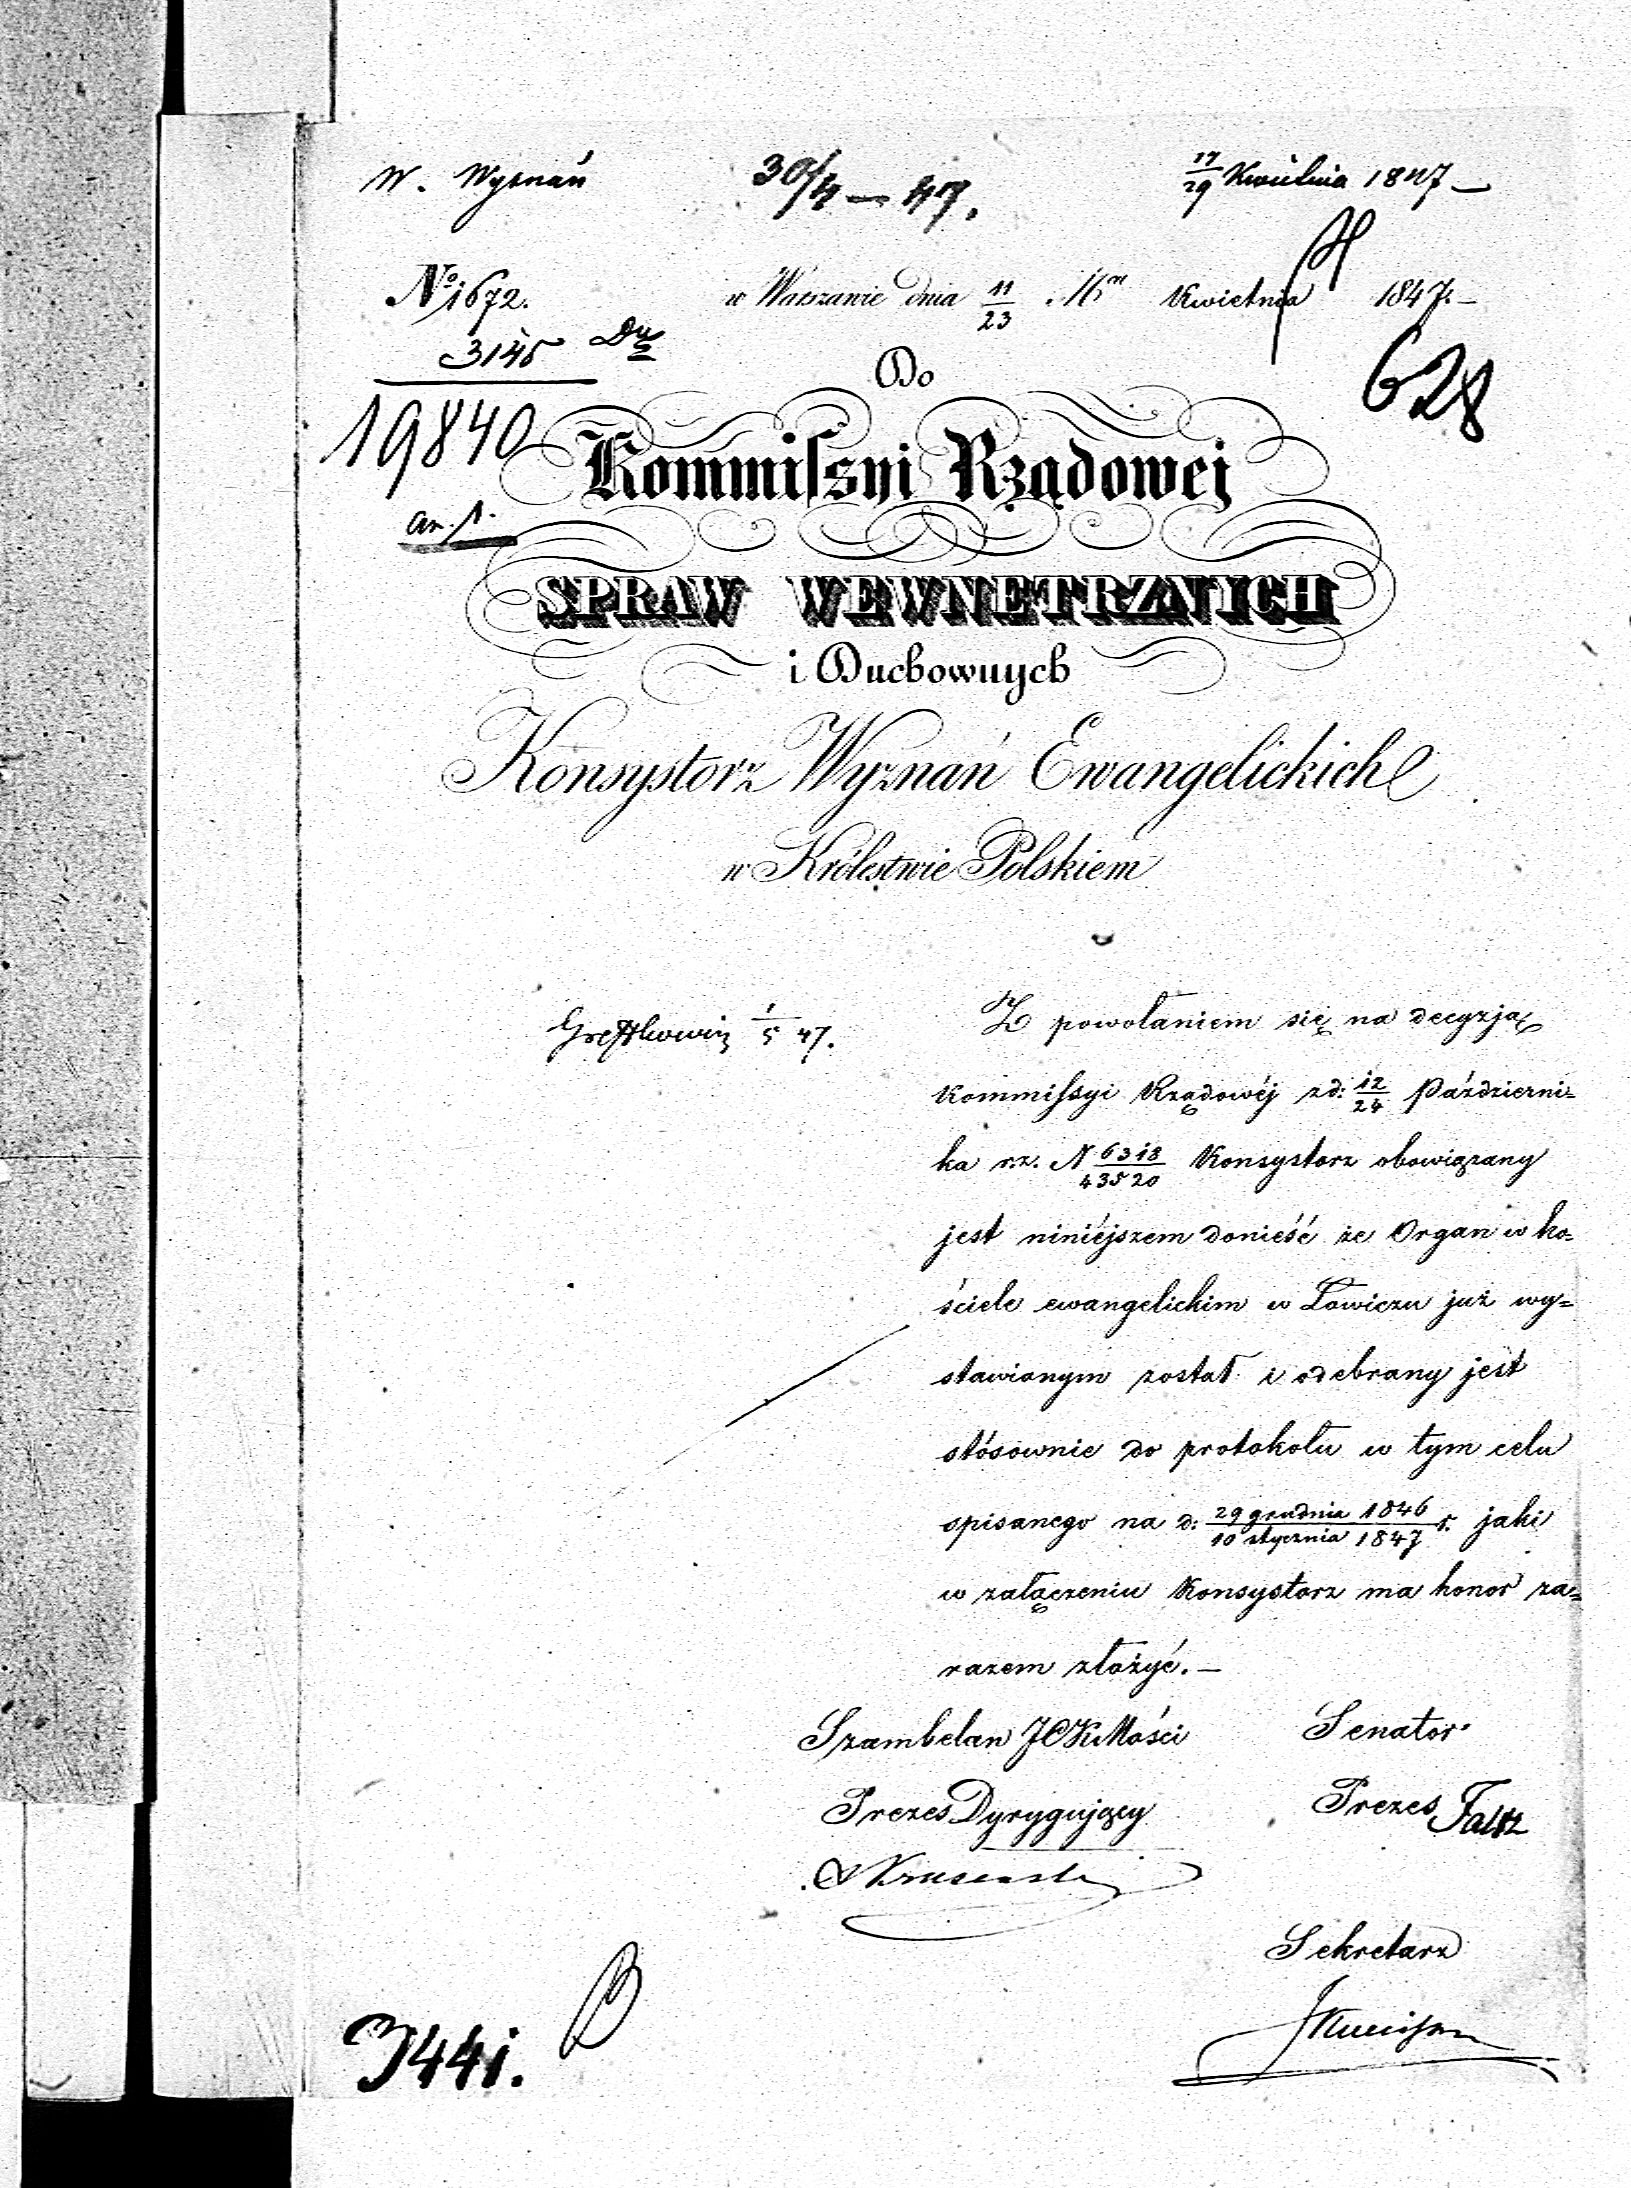 W. Wyznań 30/4 – 47. 17/29 Kwietnia 1847 –
No 1672. w Warszawie dnia 11/23 Mca Kwietnia 1847. –
3145
628
Do
19840
Kommissyi Rządowej
an. 1.
SPRAW WEWNETRZNYCH
i Duchownych
Konsystorz Wyznań Ewangelickich
w Królestwie Polskiem
1/5 47. Z powołaniem się na decyzją
Kommissyi Rządowéj z d: 12/24 Październi=
ka r.z. N 6318/43520 Konsystorz obowiązany
jest niniéjszem donieść że Organ w ko=
ściele ewangelickim w Łowiczu już wy=
stawionym został i odebrany jest
stósownie do protokołu w tym celu
spisanego na d: 29 grudnia 1846/10 stycznia 1847 r. jaki
w załączeniu Konsystorz ma honor za=
razem złożyć. –
Szambelan JCKMości Senator
Prezes Dyrygujący Prezes
Sekretarz
3441.